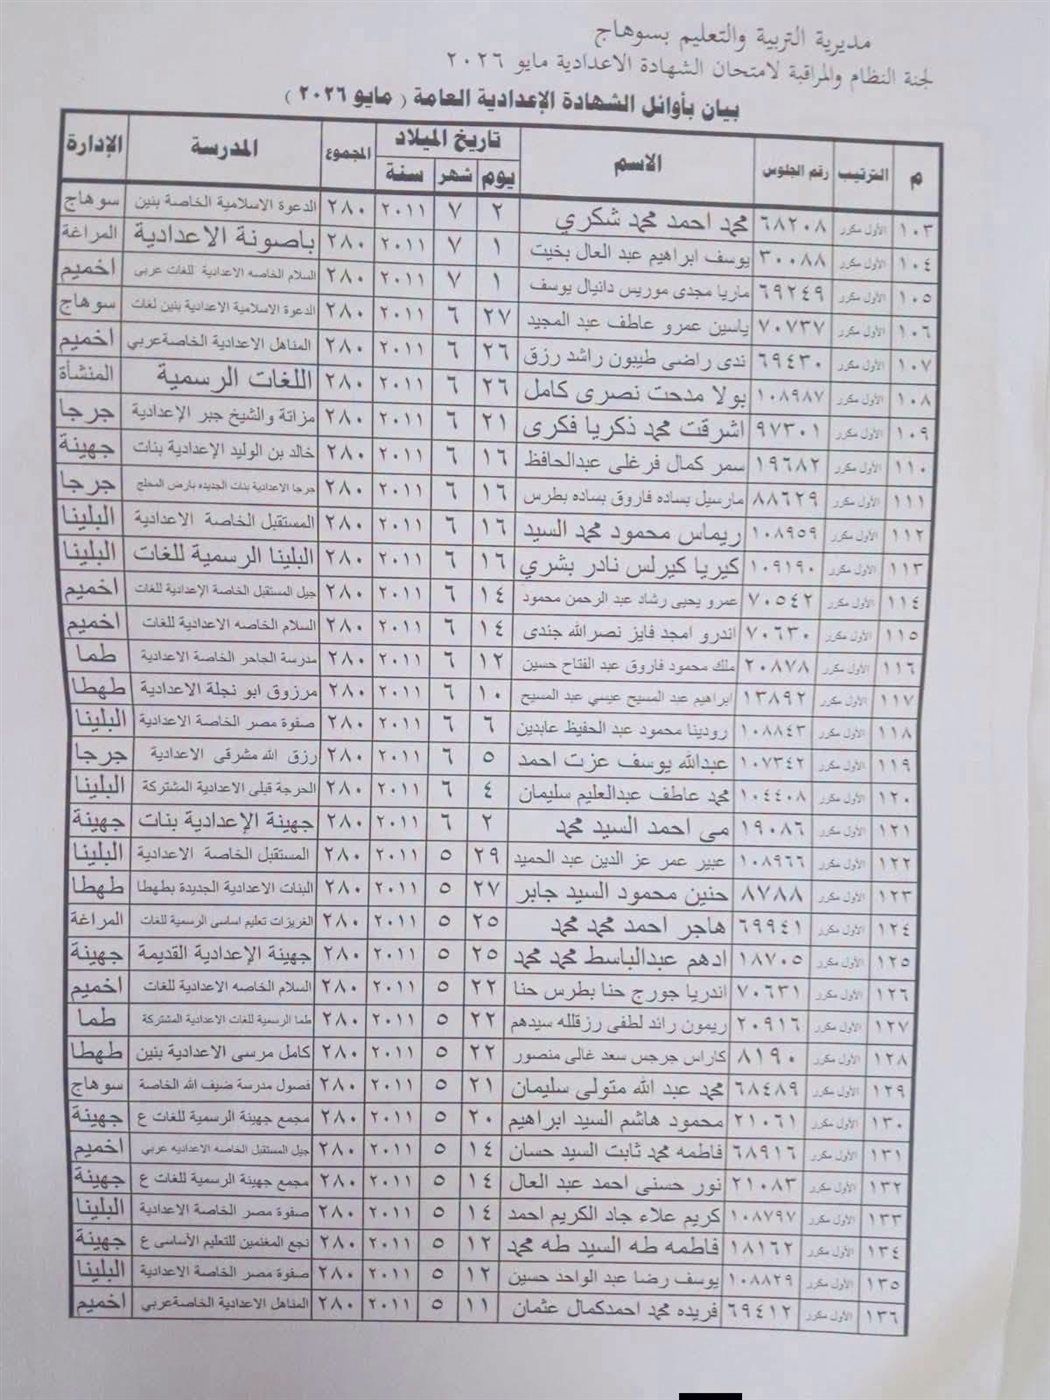 مديرية التربية والتعليم بسوهاج
لجنة النظام والمراقبة لامتحان الشهادة الاعدادية مايو ٢٠٢٦
بيان بأوائل الشهادة الإعدادية العامة ( مايو ٢٠٢٦ )
م الترتيب رقم الجلوس الاسم تاريخ الميلاد المجموع المدرسة الإدارة
يوم شهر سنة
١٠٣ الأول مكرر ٦٨٢٠٨ محمد احمد محمد شكري ٢ ٧ ٢٠١١ ٢٨٠ الدعوة الاسلامية الخاصة بنين سوهاج
١٠٤ الأول مكرر ٣٠٠٨٨ يوسف ابراهيم عبد العال بخيت ١ ٧ ٢٠١١ ٢٨٠ باصونة الاعدادية المراغة
١٠٥ الأول مكرر ٦٩٢٤٩ ماريا مجدى موريس دانيال يوسف ١ ٧ ٢٠١١ ٢٨٠ السلام الخاصه الاعدادية للغات عربى اخميم
١٠٦ الأول مكرر ٧٠٧٣٧ ياسين عمرو عاطف عبد المجيد ٢٧ ٦ ٢٠١١ ٢٨٠ الدعوة الاسلامية الاعدادية بنين لغات سوهاج
١٠٧ الأول مكرر ٦٩٤٣٠ ندى راضى طيبون راشد رزق ٢٦ ٦ ٢٠١١ ٢٨٠ المناهل الاعدادية الخاصةعربي اخميم
١٠٨ الأول مكرر ١٠٨٩٨٧ بولا مدحت نصرى كامل ٢٦ ٦ ٢٠١١ ٢٨٠ اللغات الرسمية المنشأة
١٠٩ الأول مكرر ٩٧٣٠١ اشرقت محمد ذكريا فكرى ٢١ ٦ ٢٠١١ ٢٨٠ مزاتة والشيخ جبر الإعدادية جرجا
١١٠ الأول مكرر ١٩٦٨٢ سمر كمال فرغلى عبدالحافظ ١٦ ٦ ٢٠١١ ٢٨٠ خالد بن الوليد الإعدادية بنات جهينة
١١١ الأول مكرر ٨٨٦٢٩ مارسيل بساده فاروق بساده بطرس ١٦ ٦ ٢٠١١ ٢٨٠ جرجا الاعدادية بنات الجديده بارض المحلج جرجا
١١٢ الأول مكرر ١٠٨٩٥٩ ريماس محمود محمد السيد ١٦ ٦ ٢٠١١ ٢٨٠ المستقبل الخاصة الاعدادية البلينا
١١٣ الأول مكرر ١٠٩١٩٠ كيريا كيرلس نادر بشري ١٦ ٦ ٢٠١١ ٢٨٠ البلينا الرسمية للغات البلينا
١١٤ الأول مكرر ٧٠٥٤٢ عمرو يحيى رشاد عبد الرحمن محمود ١٤ ٦ ٢٠١١ ٢٨٠ جيل المستقبل الخاصة الإعدادية للغات اخميم
١١٥ الأول مكرر ٧٠٦٣٠ اندرو امجد فايز نصرالله جندى ١٤ ٦ ٢٠١١ ٢٨٠ السلام الخاصه الاعدادية للغات اخميم
١١٦ الأول مكرر ٢٠٨٧٨ ملك محمود فاروق عبد الفتاح حسين ١٢ ٦ ٢٠١١ ٢٨٠ مدرسة الجاحر الخاصة الاعدادية طما
١١٧ الأول مكرر ١٣٨٩٢ ابراهيم عبد المسيح عيسي عبد المسيح ١٠ ٦ ٢٠١١ ٢٨٠ مرزوق ابو نجلة الاعدادية طهطا
١١٨ الأول مكرر ١٠٨٨٤٣ رودينا محمود عبد الحفيظ عابدين ٦ ٦ ٢٠١١ ٢٨٠ صفوة مصر الخاصة الاعدادية البلينا
١١٩ الأول مكرر ١٠٧٣٤٢ عبدالله يوسف عزت احمد ٥ ٦ ٢٠١١ ٢٨٠ رزق الله مشرقى الاعدادية جرجا
١٢٠ الأول مكرر ١٠٤٤٠٨ محمد عاطف عبدالعليم سليمان ٤ ٦ ٢٠١١ ٢٨٠ الحرجة قبلى الاعدادية المشتركة البلينا
١٢١ الأول مكرر ١٩٠٨٦ مى احمد السيد محمد ٢ ٦ ٢٠١١ ٢٨٠ جهينة الإعدادية بنات جهينة
١٢٢ الأول مكرر ١٠٨٩٦٦ عبير عمر عز الدين عبد الحميد ٢٩ ٥ ٢٠١١ ٢٨٠ المستقبل الخاصة الاعدادية البلينا
١٢٣ الأول مكرر ٨٧٨٨ حنين محمود السيد جابر ٢٧ ٥ ٢٠١١ ٢٨٠ البنات الاعدادية الجديدة بطهطا طهطا
١٢٤ الأول مكرر ٦٩٩٤١ هاجر احمد محمد محمد ٢٥ ٥ ٢٠١١ ٢٨٠ الغريزات تعليم اساسى الرسمية للغات المراغة
١٢٥ الأول مكرر ١٨٧٠٥ ادهم عبدالباسط محمد محمد ٢٥ ٥ ٢٠١١ ٢٨٠ جهينة الإعدادية القديمة جهينة
١٢٦ الأول مكرر ٧٠٦٣١ اندريا جورج حنا بطرس حنا ٢٢ ٥ ٢٠١١ ٢٨٠ السلام الخاصه الاعدادية للغات اخميم
١٢٧ الأول مكرر ٢٠٩١٦ ريمون رائد لطفى رزقلله سيدهم ٢٢ ٥ ٢٠١١ ٢٨٠ طما الرسمية للغات الاعدادية المشتركة طما
١٢٨ الأول مكرر ٨١٩٠ كاراس جرجس سعد غالى منصور ٢٢ ٥ ٢٠١١ ٢٨٠ كامل مرسى الاعدادية بنين طهطا
١٢٩ الأول مكرر ٦٨٤٨٩ محمد عبد الله متولى سليمان ٢١ ٥ ٢٠١١ ٢٨٠ فصول مدرسة ضيف الله الخاصة سوهاج
١٣٠ الأول مكرر ٢١٠٦١ محمود هاشم السيد ابراهيم ٢٠ ٥ ٢٠١١ ٢٨٠ مجمع جهينة الرسمية للغات ع جهينة
١٣١ الأول مكرر ٦٨٩١٦ فاطمه محمد ثابت السيد حسان ١٤ ٥ ٢٠١١ ٢٨٠ جيل المستقبل الخاصه الاعداديه عربي اخميم
١٣٢ الأول مكرر ٢١٠٨٣ نور حسنى احمد عبد العال ١٤ ٥ ٢٠١١ ٢٨٠ مجمع جهينة الرسمية للغات ع جهينة
١٣٣ الأول مكرر ١٠٨٧٩٧ كريم علاء جاد الكريم احمد ١٤ ٥ ٢٠١١ ٢٨٠ صفوة مصر الخاصة الاعدادية البلينا
١٣٤ الأول مكرر ١٨١٦٢ فاطمه طه السيد طه محمد ١٢ ٥ ٢٠١١ ٢٨٠ نجع المغنمين للتعليم الأساسى ع جهينة
١٣٥ الأول مكرر ١٠٨٨٢٩ يوسف رضا عبد الواحد حسين ١٢ ٥ ٢٠١١ ٢٨٠ صفوة مصر الخاصة الاعدادية البلينا
١٣٦ الأول مكرر ٦٩٤١٢ فريده محمد احمدكمال عثمان ١١ ٥ ٢٠١١ ٢٨٠ المناهل الاعدادية الخاصةعربي اخميم